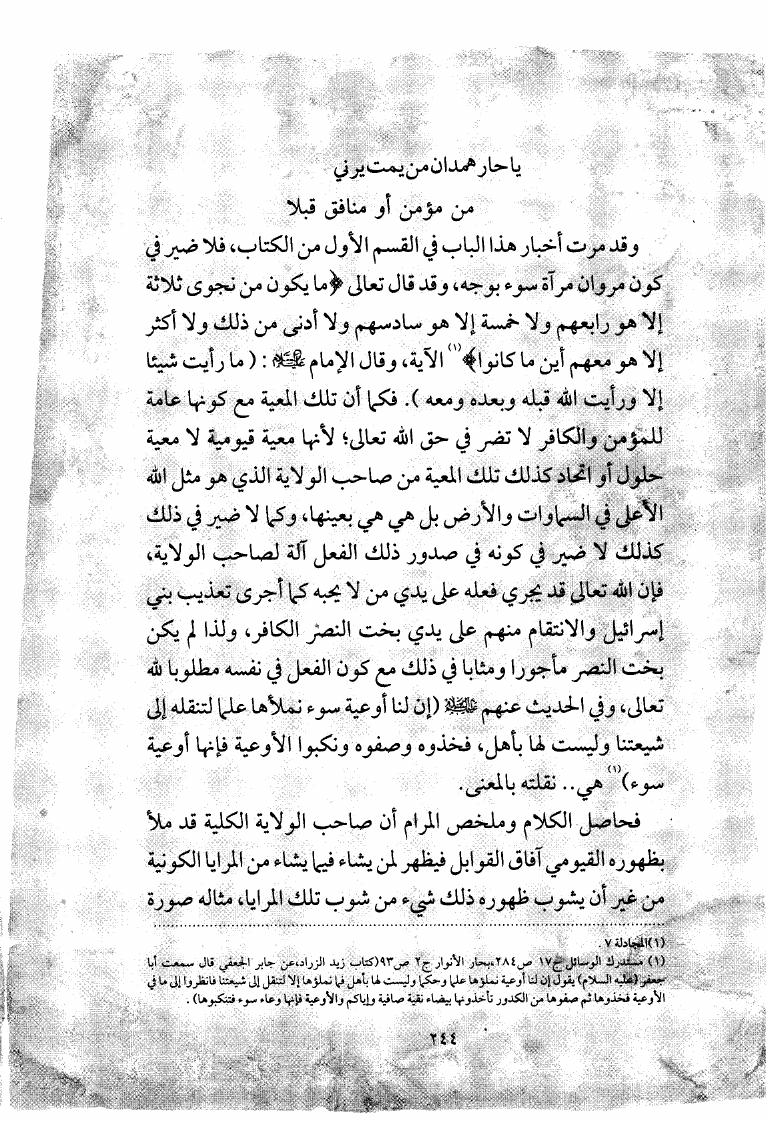 يا حار همدان من يمت يرني
من مؤمن أو منافق قبلا
وقد مرت أخبار هذا الباب في القسم الأول من الكتاب، فلا ضير في
كون مروان مرآة سوء بوجه، وقد قال تعالى ﴿ما يكون من نجوى ثلاثة
إلا هو رابعهم ولا خمسة إلا هو سادسهم ولا أدنى من ذلك ولا أكثر
إلا هو معهم أين ما كانوا﴾(١) الآية، وقال الإمام عليه السلام : ( ما رأيت شيئا
إلا ورأيت الله قبله وبعده ومعه ). فكما أن تلك المعية مع كونها عامة
للمؤمن والكافر لا تضر في حق الله تعالى؛ لأنها معية قيومية لا معية
حلول أو اتحاد كذلك تلك المعية من صاحب الولاية الذي هو مثل الله
الأعلى في السماوات والأرض بل هي هي بعينها، وكما لا ضير في ذلك
كذلك لا ضير في كونه في صدور ذلك الفعل آلة لصاحب الولاية،
فإن الله تعالى قد يجري فعله على يدي من لا يحبه كما أجرى تعذيب بني
إسرائيل والانتقام منهم على يدي بخت النصر الكافر، ولذا لم يكن
بخت النصر مأجورا ومثابا في ذلك مع كون الفعل في نفسه مطلوبا لله
تعالى، وفي الحديث عنهم عليه السلام (إن لنا أوعية سوء نملأها علما لتنقله إلى
شيعتنا وليست لها بأهل، فخذوه وصفوه ونكبوا الأوعية فإنها أوعية
سوء)(١) هي.. نقلته بالمعنى.
فحاصل الكلام وملخص المرام أن صاحب الولاية الكلية قد ملأ
بظهوره القيومي آفاق القوابل فيظهر لمن يشاء فيما يشاء من المرايا الكونية
من غير أن يشوب ظهوره ذلك شيء من شوب تلك المرايا، مثاله صورة
(١) المجادلة ٧ .
(١) مستدرك الوسائل ج١٧ ص٢٨٤،بحار الأنوار ج٢ ص٩٣(كتاب زيد الزراد،عن جابر الجعفي قال سمعت أبا
جعفر(عليه السلام) يقول إن لنا أوعية نملؤها علما وحكما وليست لها بأهل فما نملؤها إلا لتنقل إلى شيعتنا فانظروا إلى ما في
الأوعية فخذوها ثم صفوها من الكدور تأخذونها بيضاء نقية صافية وإياكم والأوعية فإنها وعاء سوء فتنكبوها) .
٢٤٤